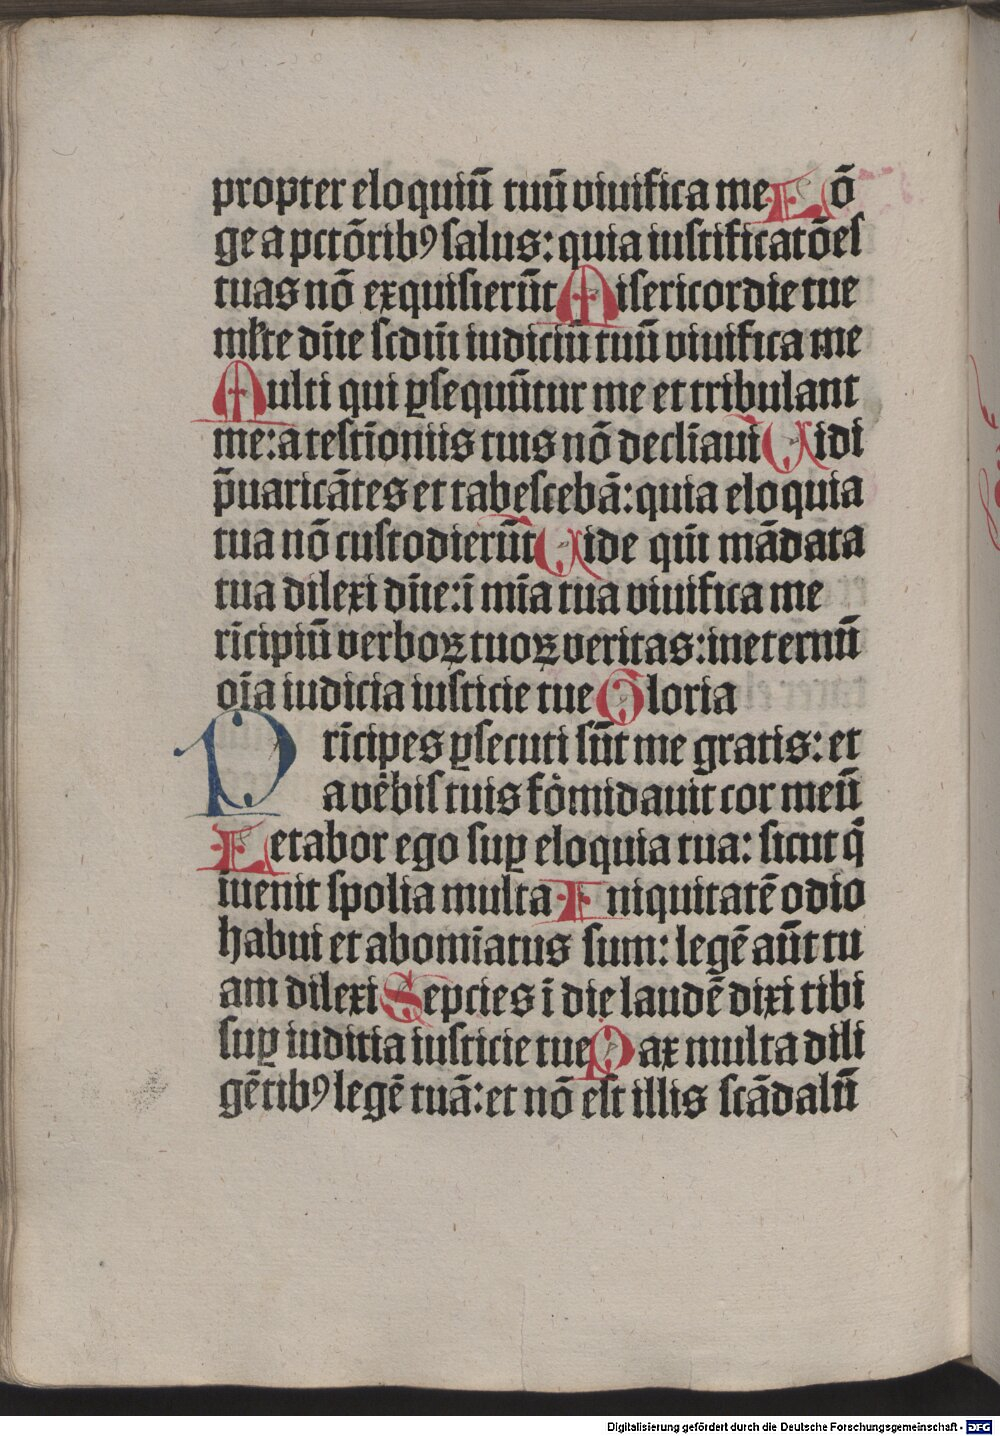 propter eloquiū tuū viuifica me Lō
ge a pctōribꝰ salus: quia iustificatōes
tuas nō exquisierūt Misericordie tue
mlte dn̄e scdm̄ iudiciū tuū viuifica me
Multi qui ꝑsequūtur me et tribulant
me: a testīoniis tuis nō declīaui Uidi
p̄uaricātes et tabescebā: quia eloquia
tua nō custodierūt Uide qm̄ mādata
tua dilexi dn̄e: ī mīa tua viuifica me
rīcipiū verboꝝ tuoꝝ veritas: in eternū
oīa iudicia iusticie tue Gloria
Prīcipes ꝑsecuti sūt me gratis: et
a vēbis tuis fōmidauit cor meū
Letabor ego suꝑ eloquia tua: sicut q̄
iuenit spolia multa Iniquitatē odio
habui et abomīatus sum: legē aūt tu
am dilexi Septies ī die laudē dixi tibi
suꝑ iuditia iusticie tue Pax multa dili
gētibꝰ legē tuā: et nō est illis scādalū
Digitalisierung gefördert durch die Deutsche Forschungsgemeinschaft - DFG